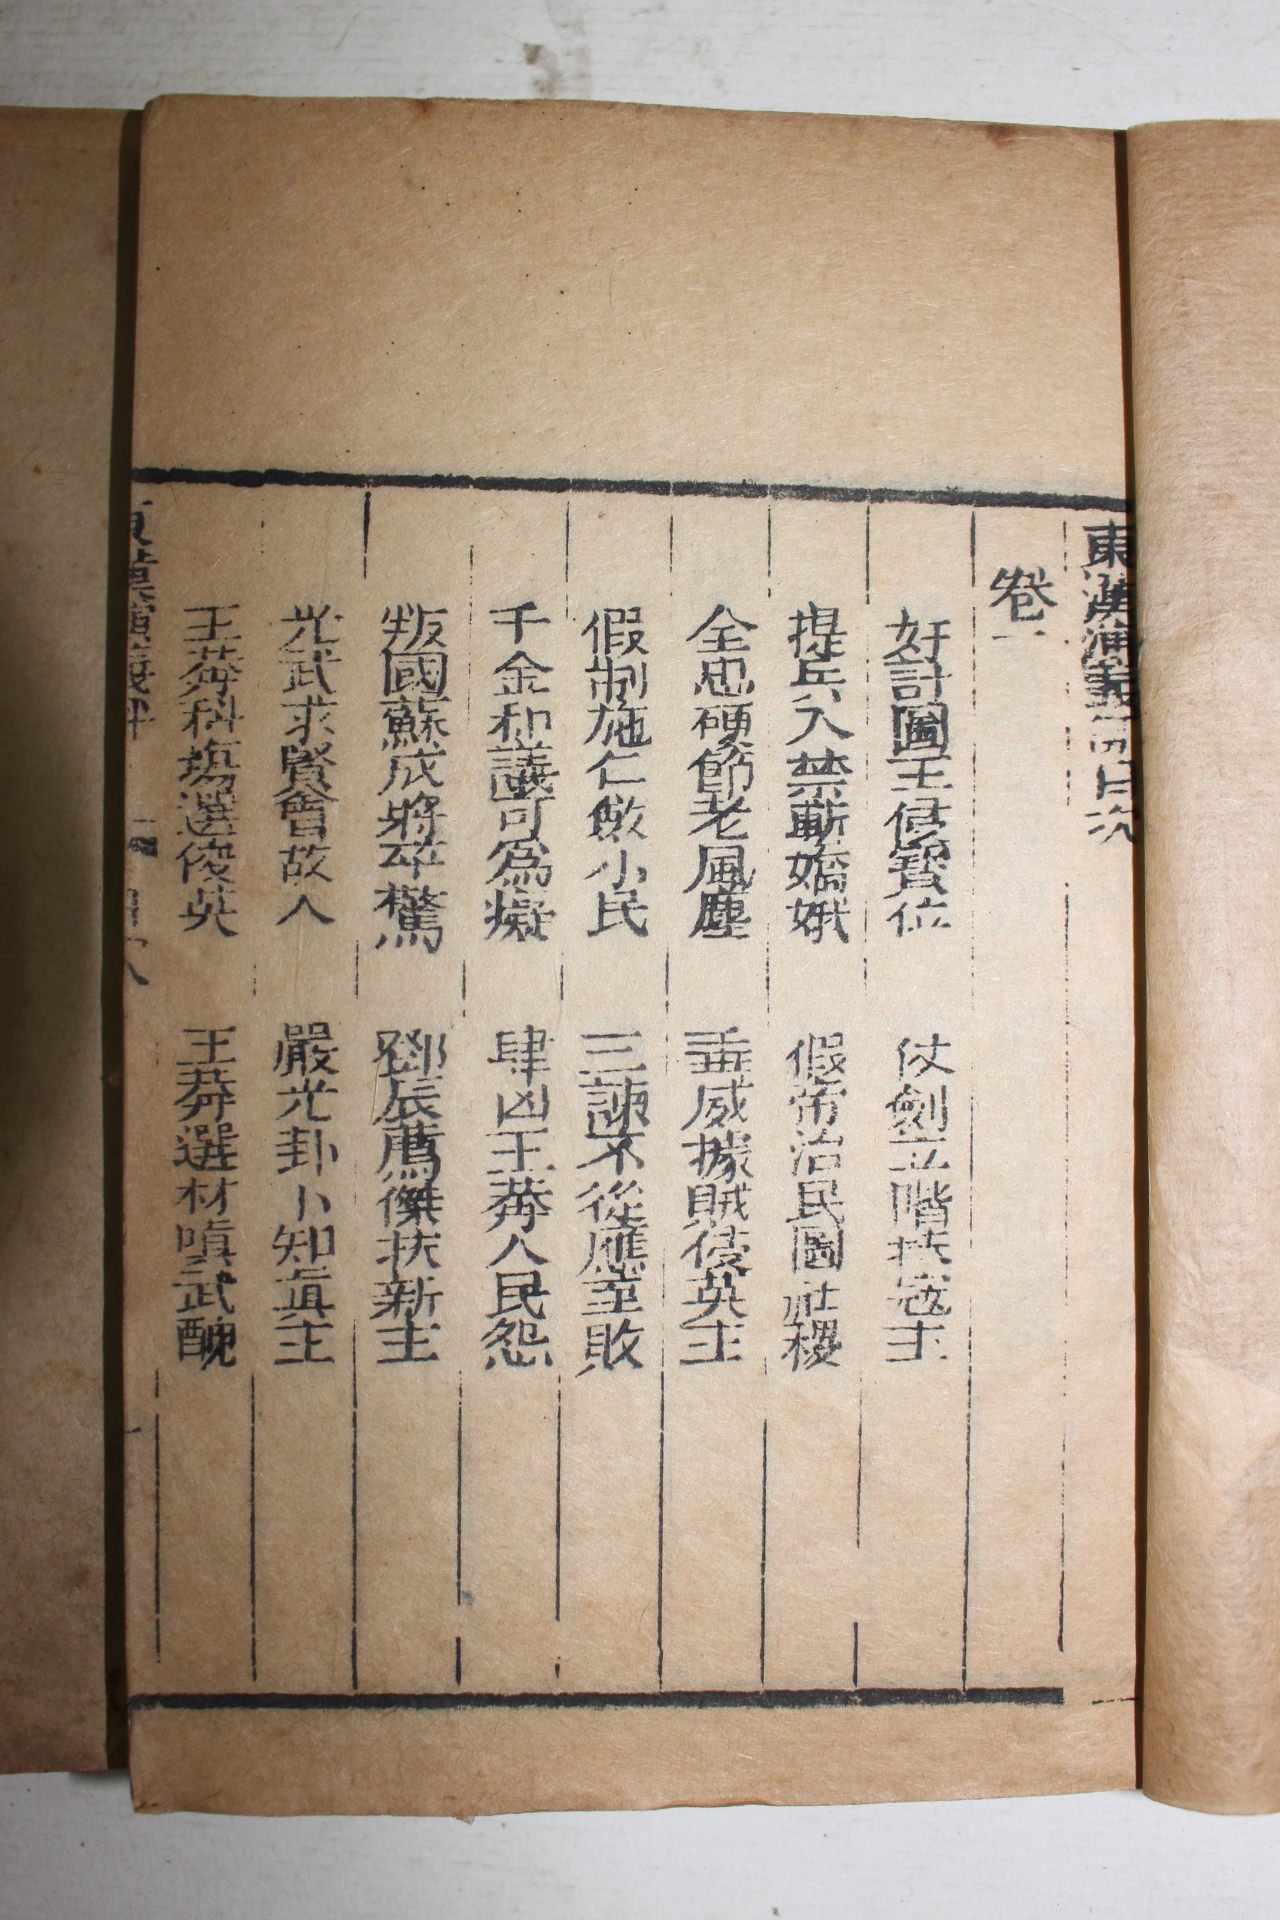 東漢演義評目次
卷一
奸計圖王侵寶位　仗劍立階扶冦主
提兵入禁斬嬌娥　假帝治民圖社稷
全忠硬節老風塵　垂威據賊侵英主
假制施仁儆小民　三諫不從應至敗
千金和議可為癡　肆凶王莽人民怨
叛國蘇成將卒驚　鄧辰薦傑扶新主
光武求賢會故人　嚴光卦卜知眞主
王莽科塲選俊英　王莽選材嗔武醜
東漢演義評